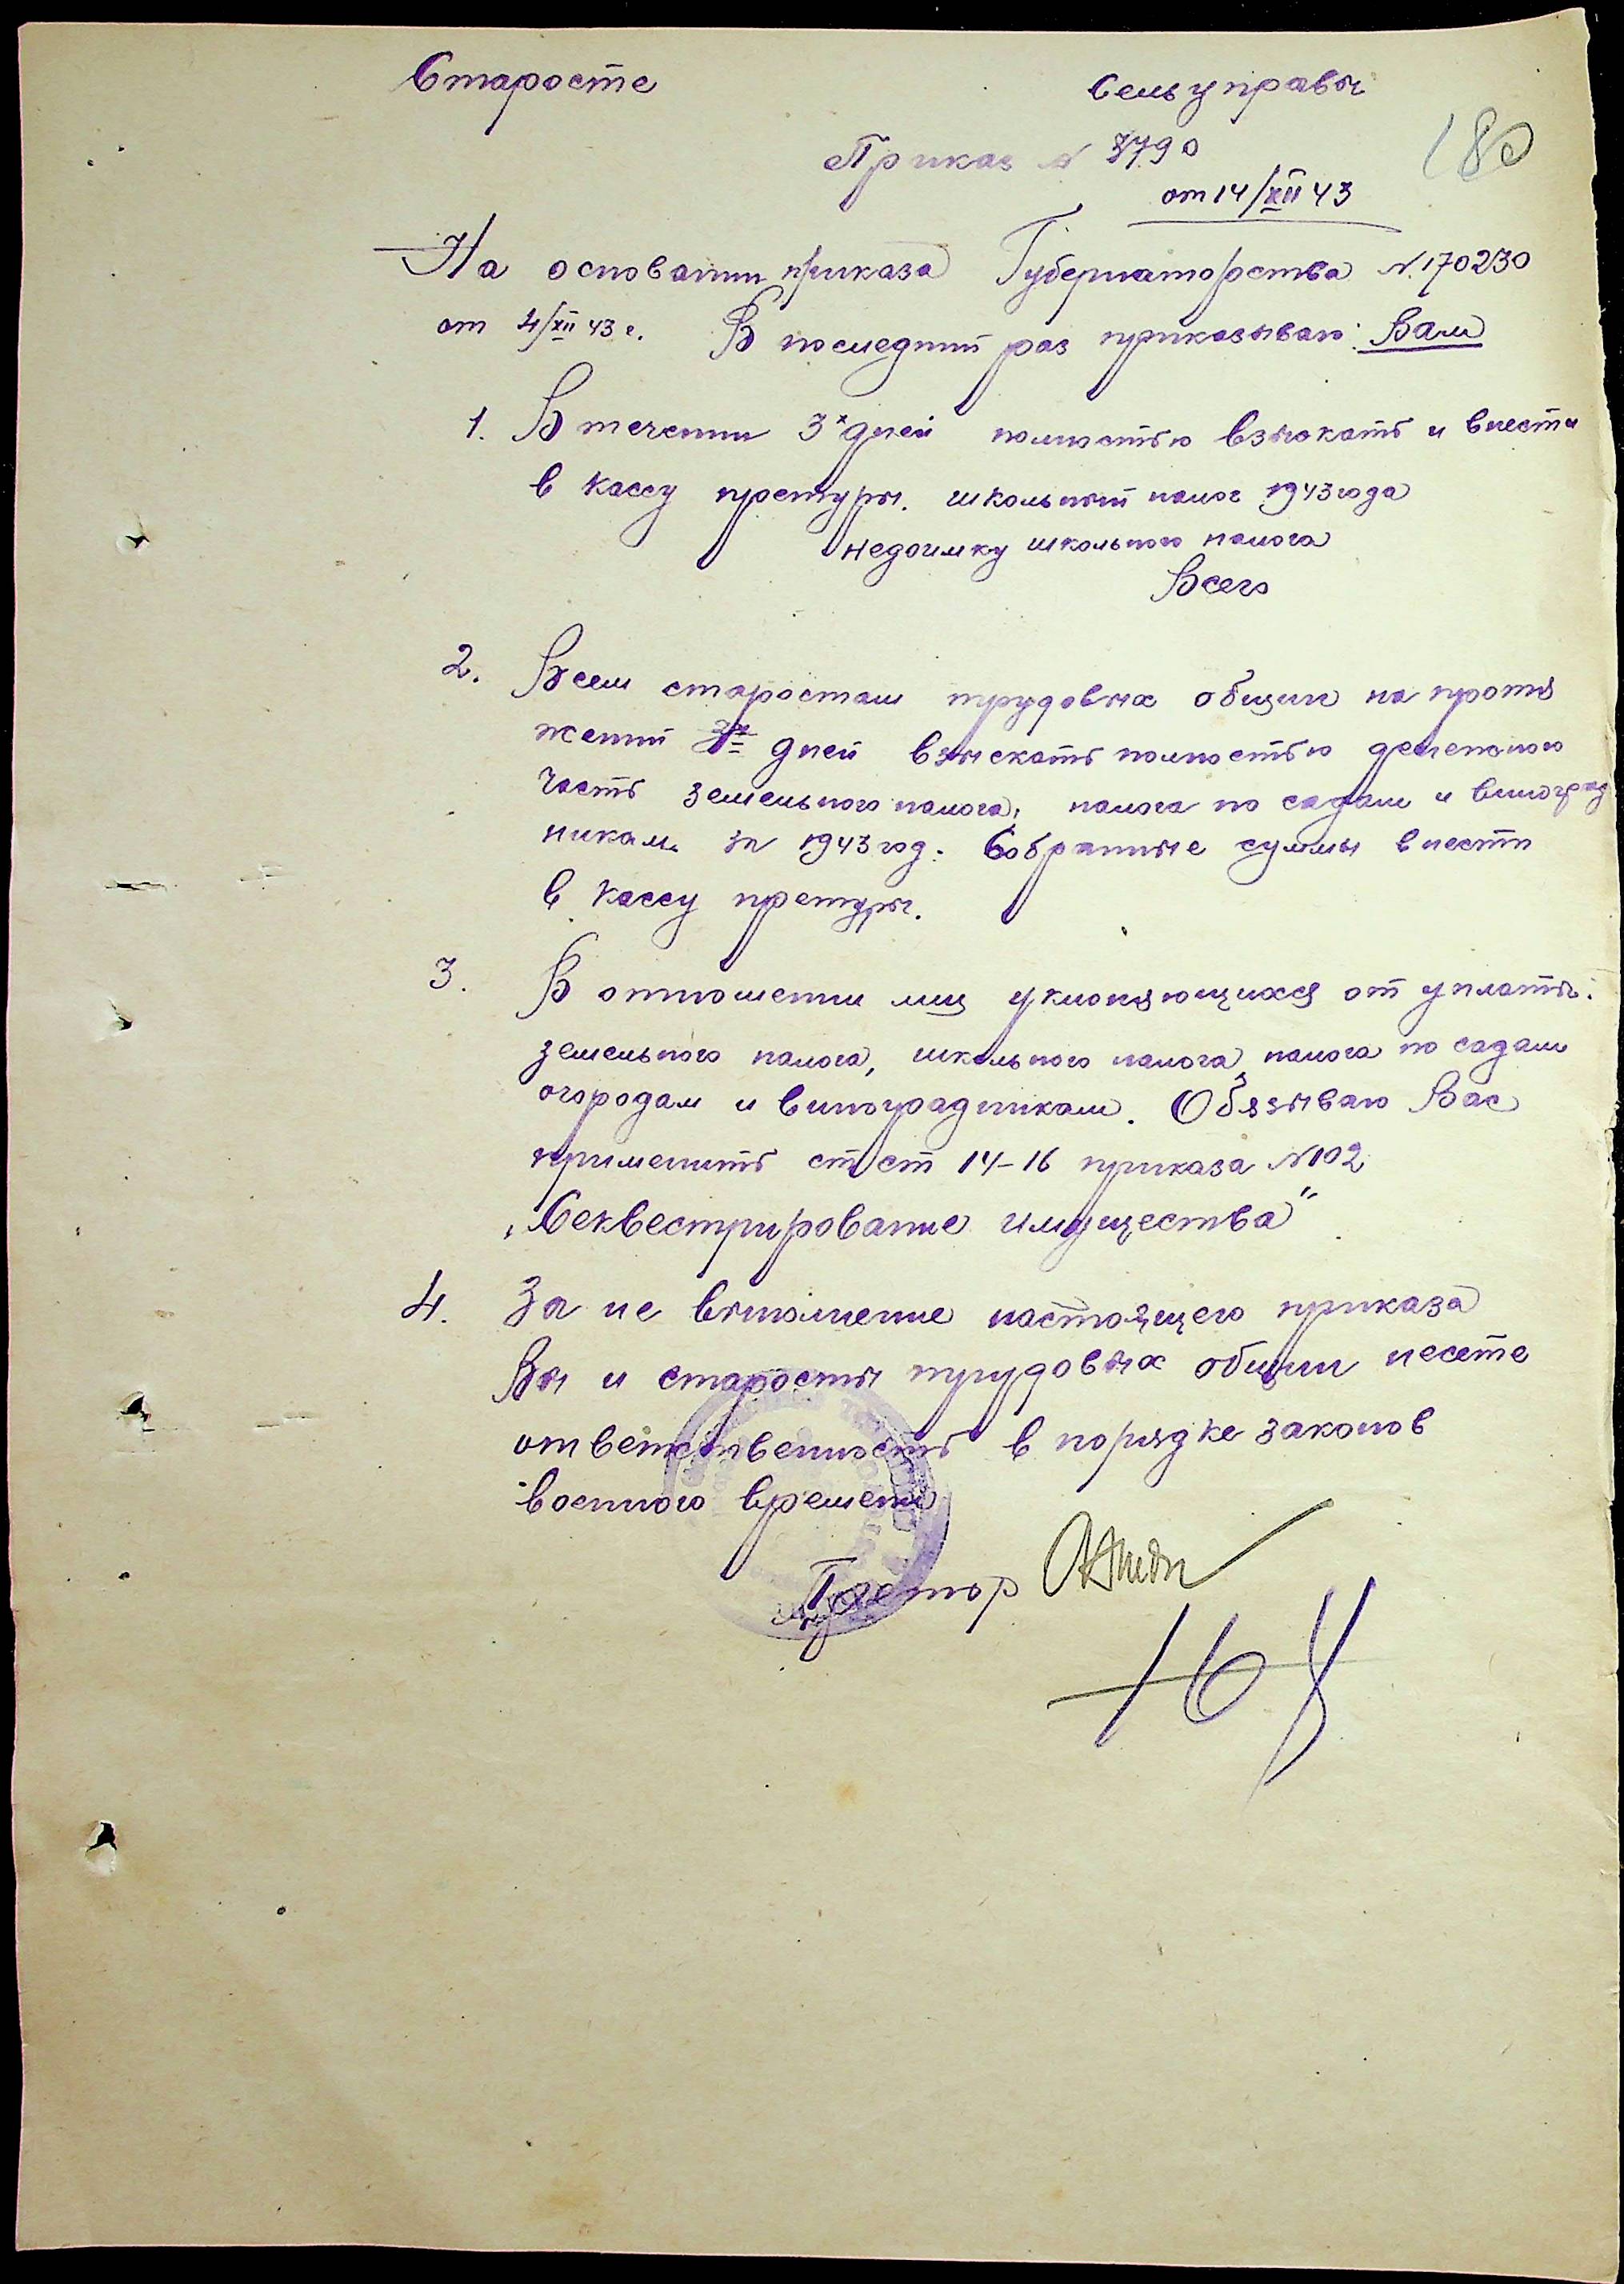 Старосте Сельуправы
Приказ № 3790
180
от 14/XII 43
На основании приказа Губернаторства № 170230
от 4/XII 43 г. В последний раз приказываю: Вам
1. В течении 3х дней полностью взыскать и внести
в кассу претуры. школьный налог 1943 года
недоимку школьного налога
Всего
2. Всем старостам трудовых общин на протя
жении дней взыскать полностью денежною
часть земельного налога, налога по садам и виноград
никам за 1943 год. Собранные суммы внести
в кассу претуры.
3. В отношении лиц уклоняющихся от уплаты:
земельного налога, школьного налога, налога по садам
огородам и виноградникам. Обязываю Вас
применить ст ст 14-16 приказа №102
„Секвестрирование имущества"
4. За не выполнение настоящего приказа
Вы и старосты трудовых общин несете
ответственность в порядке законов
военного времени
Претор